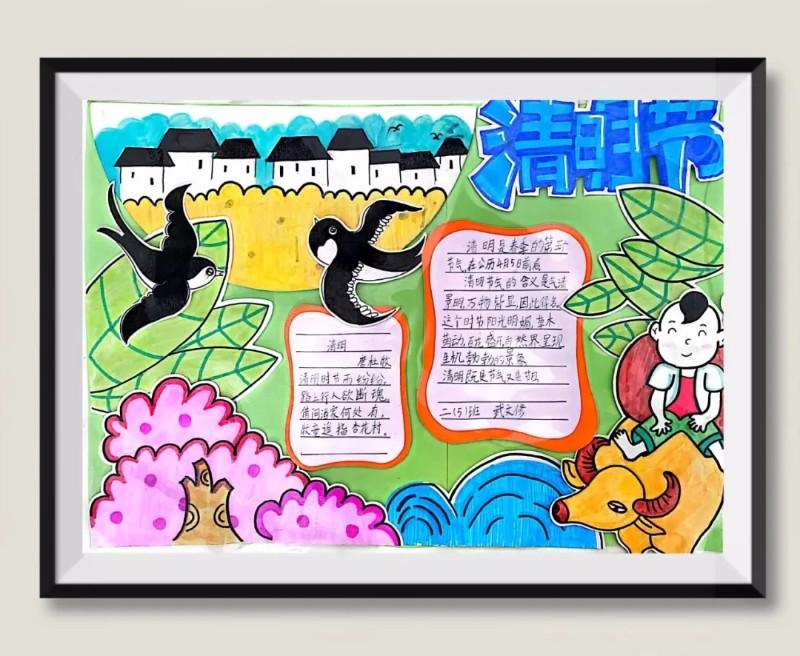 清明节
清明
唐杜牧
清明时节雨纷纷,
路上行人欲断魂。
借问酒家何处有,
牧童遥指杏花村。
清明是春季的第五个
节气,在公历4月5日前后
清明节气的含义是气清
景明,万物皆显,因此得名
这个时节阳光明媚,草木
萌动,百花盛开,自然界呈现
生机勃勃的景象
清明既是节气又是节日
二(5)班 武文修